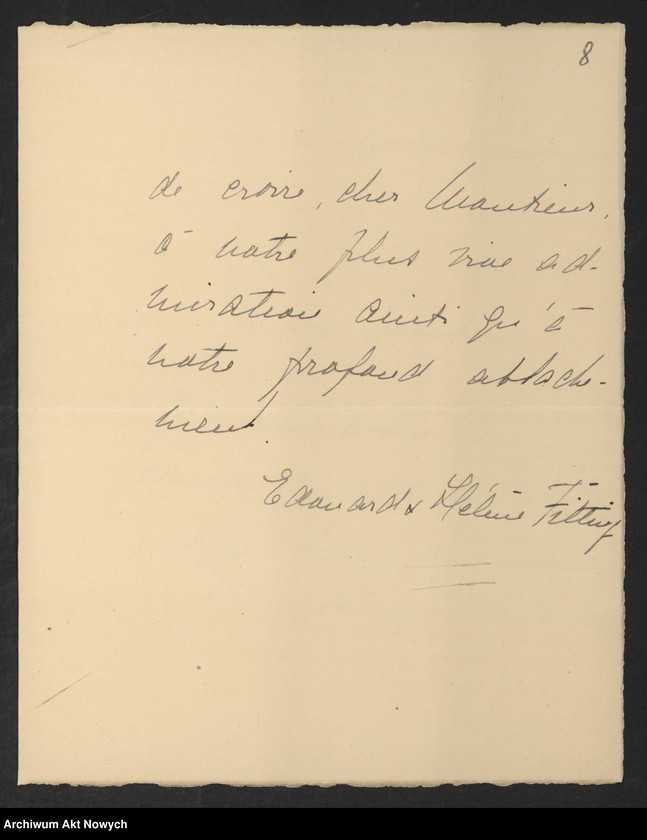 8
de croire, cher Monsieur,
à notre plus vive ad-
miration ainsi qu'à
notre profond attache-
ment.
Edouard & Hélène Fitting
Archiwum Akt Nowych